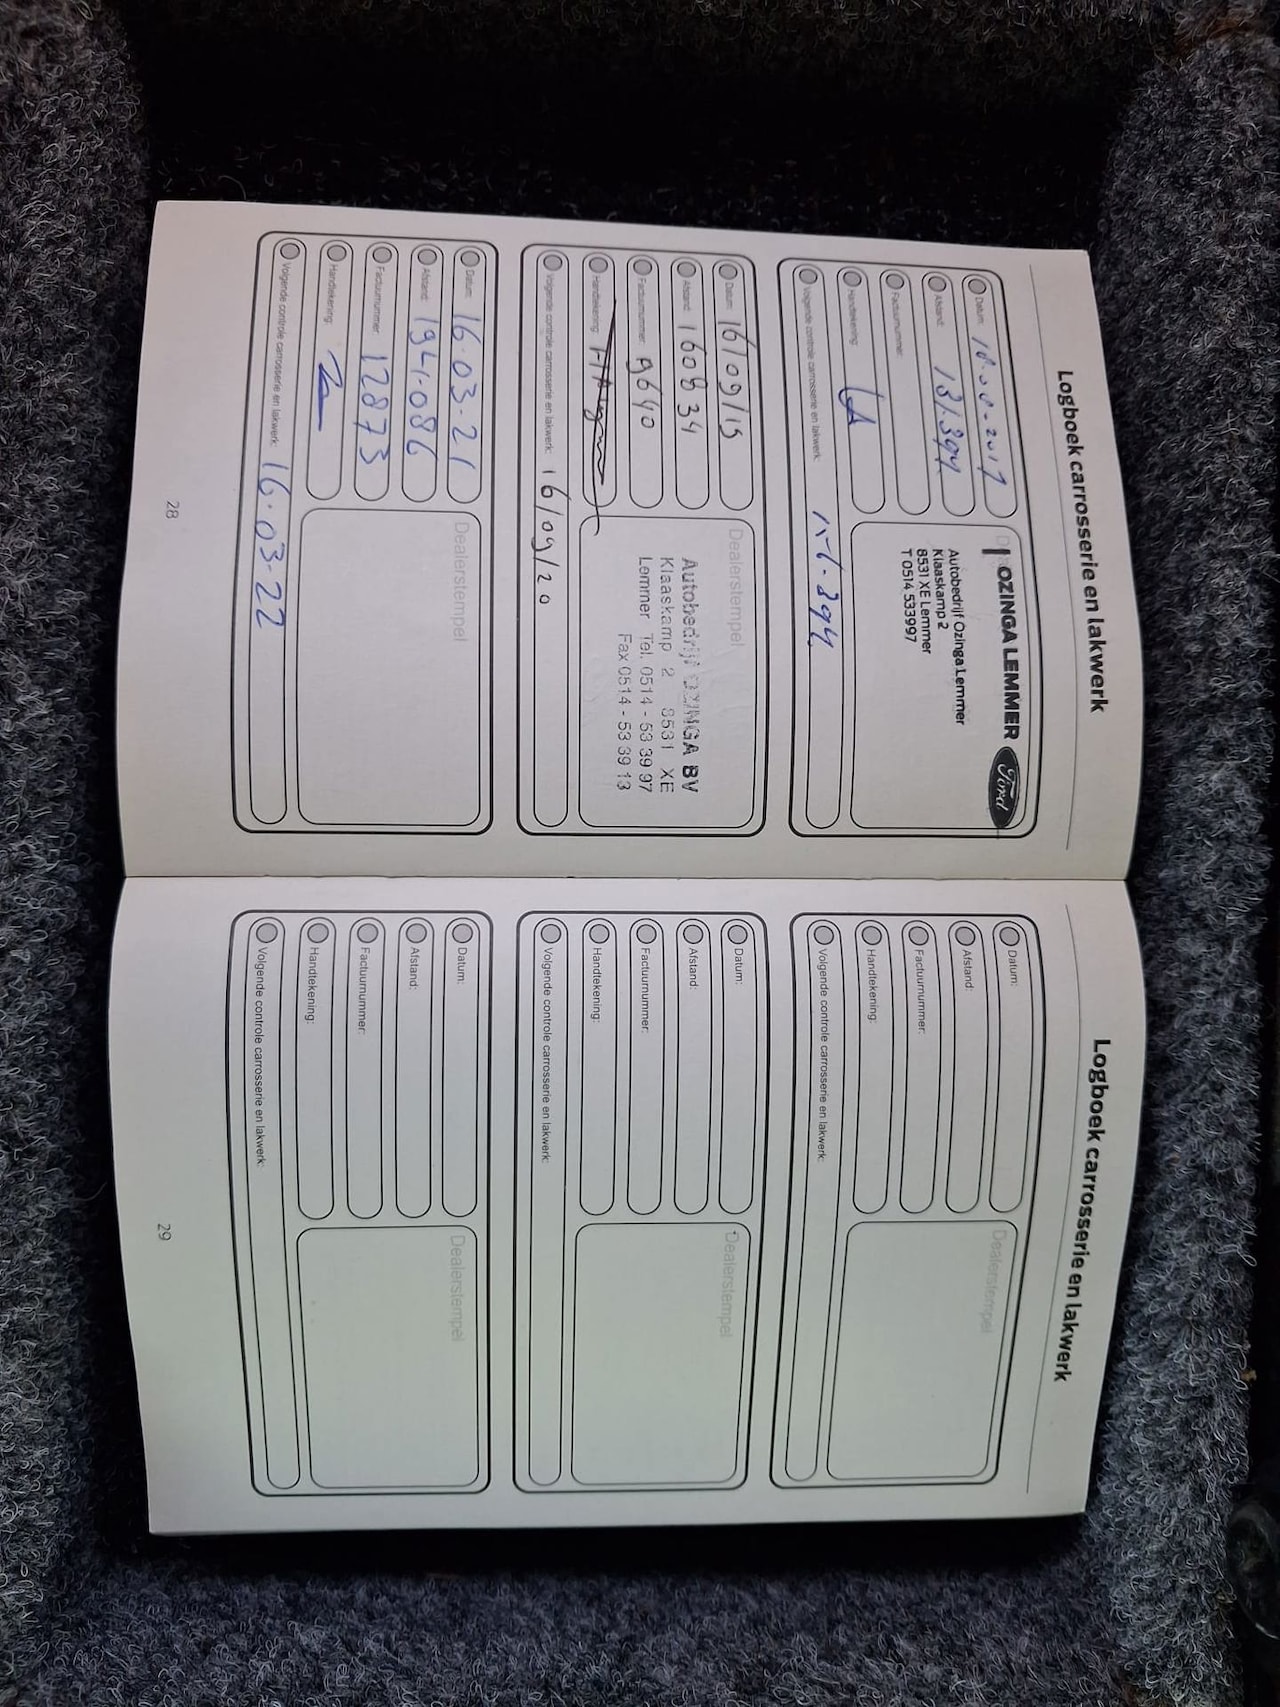 Logboek carrosserie en lakwerk
Datum:
Afstand: 131.394
Factuurnummer:
Handtekening:
Volgende controle carrosserie en lakwerk:
OZINGA LEMMER Ford
Autobedrijf Ozinga Lemmer
Klaaskamp 2
8531 XE Lemmer
T 0514 533997
Datum: 16/09/19
Afstand: 160834
Factuurnummer: 9640
Handtekening:
Volgende controle carrosserie en lakwerk: 16/09/20
Dealerstempel
Autobedrijf OZINGA BV
Klaaskamp 2 8531 XE
Lemmer Tel. 0514 - 53 39 97
Fax 0514 - 53 39 13
Datum: 16-03-21
Afstand: 194.086
Factuurnummer: 12873
Handtekening:
Volgende controle carrosserie en lakwerk: 16-03-22
Dealerstempel
28
Logboek carrosserie en lakwerk
Datum:
Afstand:
Factuurnummer:
Handtekening:
Volgende controle carrosserie en lakwerk:
Dealerstempel
Datum:
Afstand:
Factuurnummer:
Handtekening:
Volgende controle carrosserie en lakwerk:
Dealerstempel
Datum:
Afstand:
Factuurnummer:
Handtekening:
Volgende controle carrosserie en lakwerk:
Dealerstempel
29